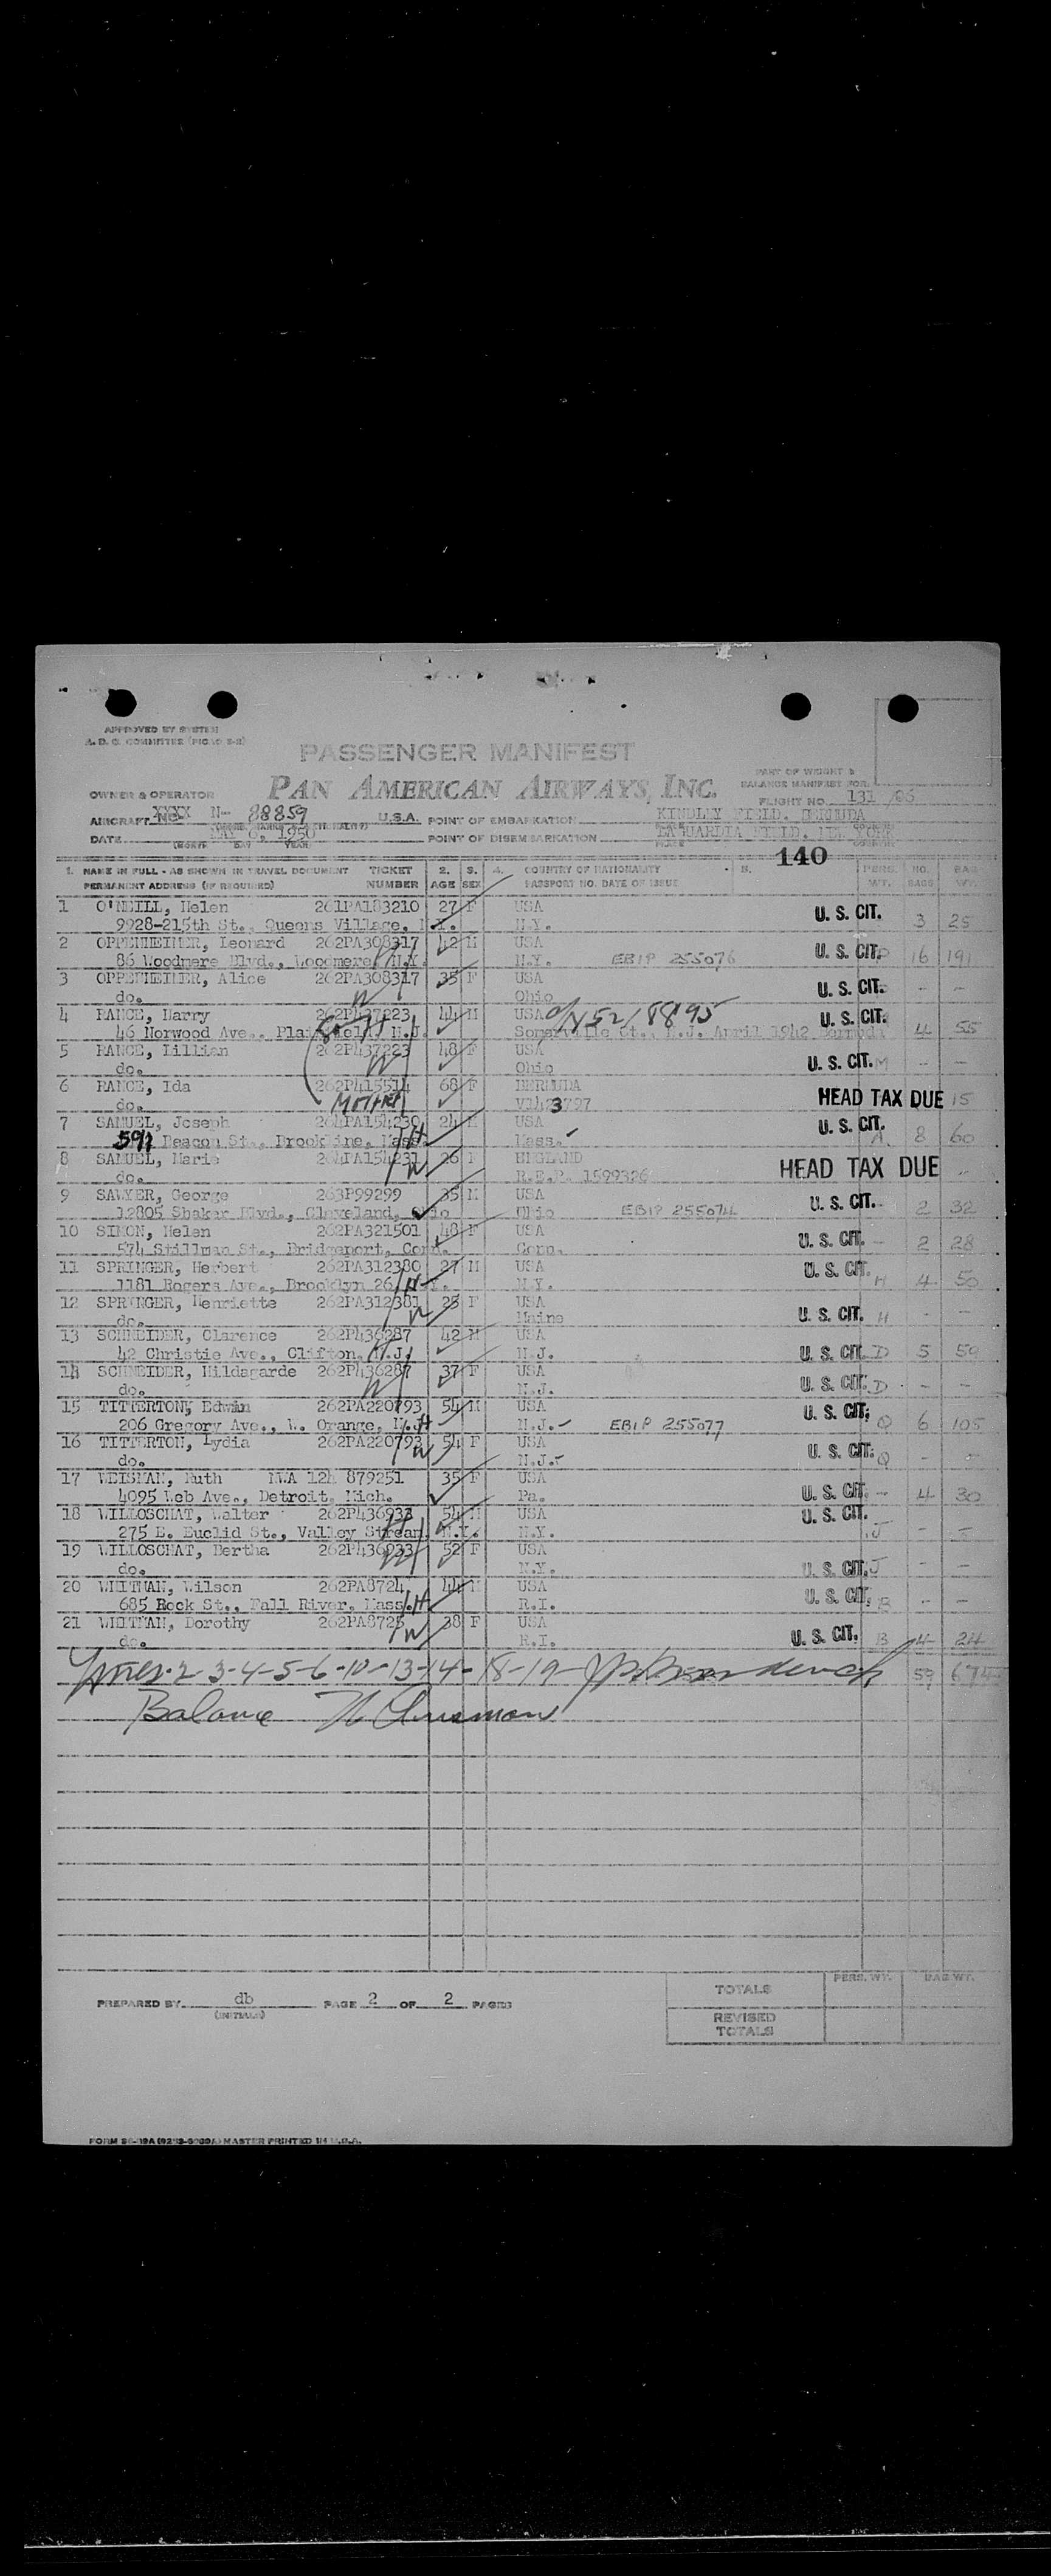 APPROVED BY SYSTEM
A. D. C. COMMITTEE
PASSENGER MANIFEST
PAN AMERICAN AIRWAYS, INC.
PART OF WEIGHT &
BALANCE MANIFEST FOR
OWNER & OPERATOR
FLIGHT NO. 131 /86
AIRCRAFT NO. XXXX N- 88859 U.S.A. POINT OF EMBARKATION KINDLEY FIELD, BERMUDA
DATE MAY 6, 1950 POINT OF DISEMBARKATION LAGUARDIA FIELD, NEW YORK
MONTH DAY YEAR PLACE COUNTRY
140
1. NAME IN FULL - AS SHOWN IN TRAVEL DOCUMENT TICKET 2. 3. 4. COUNTRY OF NATIONALITY 5. PERS. NO. BAG
PERMANENT ADDRESS (IF REQUIRED) NUMBER AGE SEX PASSPORT NO. DATE OF ISSUE WT. BAGS WT.
1 O'NEILL, Helen 261PA183210 27 F USA U. S. CIT.
9928-215th St., Queens Village, N.Y. N.Y. 3 25
2 OPPENHEIMER, Leonard 262PA308317 42 M USA U. S. CIT.
86 Woodmere Blvd., Woodmere, N.Y. H N.Y. EBIP 255076 P 16 191
3 OPPENHEIMER, Alice 262PA308317 35 F USA U. S. CIT. - -
do. W Ohio
4 RANCE, Harry 262P437223 44 M USA 5218895 U. S. CIT.
46 Norwood Ave., Plainfield, N.J. Somerville Ct., N.J. April 1942 Bermuda 4 55
5 RANCE, Lillian 262P437223 48 F USA
do. W Ohio U. S. CIT. M - -
6 RANCE, Ida 262P415514 68 F BERMUDA HEAD TAX DUE 15
do. MOTHER V1423797
7 SAMUEL, Joseph 264PA154230 24 M USA U. S. CIT.
597 Beacon St., Brookline, Mass. H Mass. A. 8 60
8 SAMUEL, Marie 264PA154231 26 F ENGLAND HEAD TAX DUE
do. W R.E.P. 1599326
9 SAWYER, George 263P99299 35 M USA U. S. CIT.
12805 Shaker Blvd., Cleveland, Ohio Ohio EBIP 255074 2 32
10 SIMON, Helen 262PA321501 48 F USA U. S. CIT.
574 Stillman St., Bridgeport, Conn. Conn. - 2 28
11 SPRINGER, Herbert 262PA312380 27 M USA U. S. CIT.
1181 Rogers Ave., Brooklyn 26, N.Y. H N.Y. H 4 50
12 SPRINGER, Henriette 262PA312381 25 F USA
do. W Maine U. S. CIT. H -
13 SCHNEIDER, Clarence 262P436287 42 M USA
42 Christie Ave., Clifton, N.J. H N.J. U. S. CIT. D 5 59
14 SCHNEIDER, Hildagarde 262P436287 37 F USA
do. W N.J. U. S. CIT. D - -
15 TITTERTON, Edwin 262PA220793 54 M USA U. S. CIT.
206 Gregory Ave., W. Orange, N.J. H N.J. EBIP 255077 Q 6 105
16 TITTERTON, Lydia 262PA220793 54 F USA U. S. CIT.
do. W N.J. Q - -
17 WEISMAN, Ruth NWA 12A 879251 35 F USA
4095 Web Ave., Detroit, Mich. Pa. U. S. CIT. - 4 30
18 WILLOSCHAT, Walter 262P436933 54 M USA U. S. CIT.
275 E. Euclid St., Valley Stream, N.Y. H N.Y. J - -
19 WILLOSCHAT, Bertha 262P436933 52 F USA
do. W N.Y. U. S. CIT. J - -
20 WHITMAN, Wilson 262PA8724 44 M USA U. S. CIT.
685 Rock St., Fall River, Mass. H R.I. B - -
21 WHITMAN, Dorothy 262PA8725 38 F USA
do. W R.I. U. S. CIT. B 4 24
2-3-4-5-6-10-13-14-18-19- 59 674
Balance
PREPARED BY db PAGE 2 OF 2 PAGES
(INITIALS)
PERS. WT. BAG WT.
TOTALS
REVISED
TOTALS
MASTER PRINTED IN U.S.A.